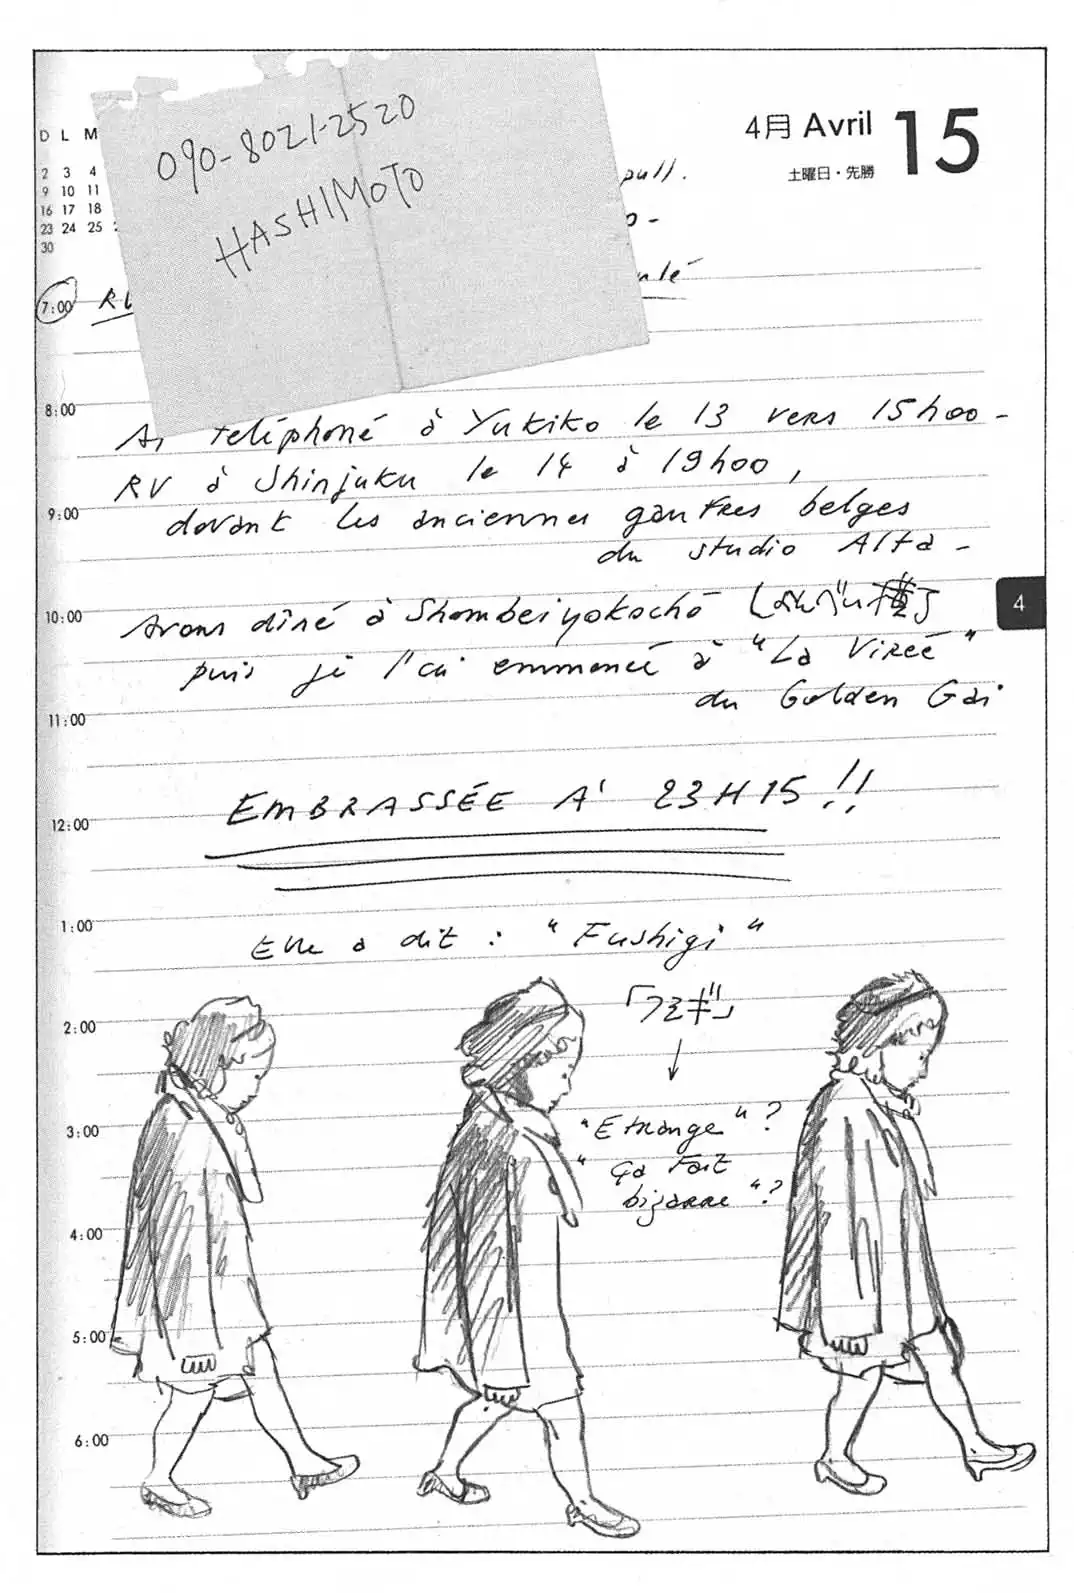 090-8021-2520
HASHIMOTO
D L M
2 3 4
9 10 11
16 17 18
23 24 25
30
4月 Avril 15
土曜日・先勝
pull.
7:00 RV
8:00
Ai téléphoné à Yukiko le 13 vers 15h00 -
RV à Shinjuku le 14 à 19h00,
9:00
devant les anciennes gaufres belges
du studio Alta -
4
10:00
Avons dîné à Shombeiyokochō しょんべん横丁
puis je l'ai emmenée à "La Virée"
du Golden Gai
11:00
EMBRASSÉE À 23H15 !!
12:00
1:00
Elle a dit : "Fushigi"
「フシギ」
2:00
"Etrange" ?
3:00
"ça fait
bizarre" ?
4:00
5:00
6:00